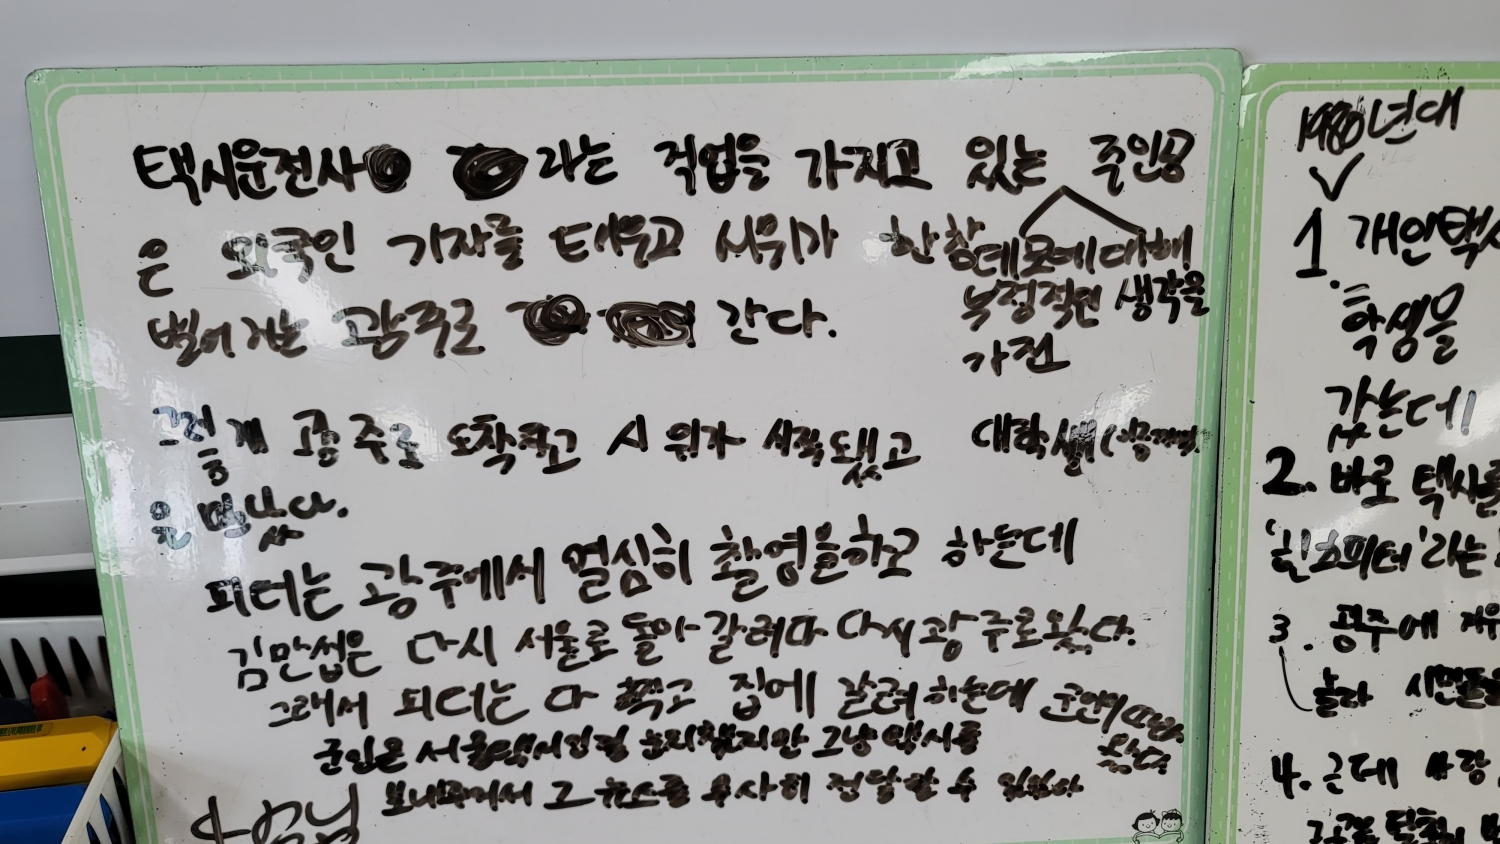 택시운전사 라는 직업을 가지고 있는 주인공
은 외국인 기자를 태우고 시위가 한창
데모에 대해
부정적인 생각을
가진
벌어지는 광주로 간다.
그렇게 광주로 도착하고 시위가 시작됐고 대학생
을 만났다.
피터는 광주에서 열심히 촬영을하고 하는데
김만섭은 다시 서울로 돌아갈려다 다시 광주로왔다.
그래서 피터는 다 찍고 집에 갈려 하는데 군인이
군인은 서울택시인걸 눈치챘지만 그냥 택시를
보내주어서 그 뉴스를 무사히 전달할 수 있었다
1980년대
1. 개인택시
학생을
갔는데
2. 바로 택시를
'힌츠피터'라는
3. 광주에
놀라 시민들을
4. 근데 사장